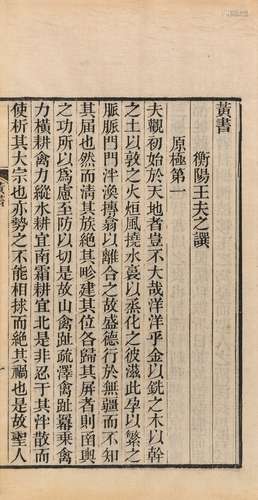 黃書
衡陽王夫之譔
原極第一
夫觀初始於天地者豈不大哉洋洋乎金以銑之木以幹
之土以敦之火烜風撓水裛以烝化之彼滋此孕以繁之
脈脈門門泮渙摶翕以離合之故盛德行於無疆而不知
其届也然而清其族絕其畛建其位各歸其屏者則函輿
之功所以爲慮至防以切是故山禽趾疏澤禽趾冪乘禽
力橫耕禽力縱水耕宜南霜耕宜北是非忍于其泮散而
使析其大宗也亦勢之不能相捄而絕其禍也是故聖人